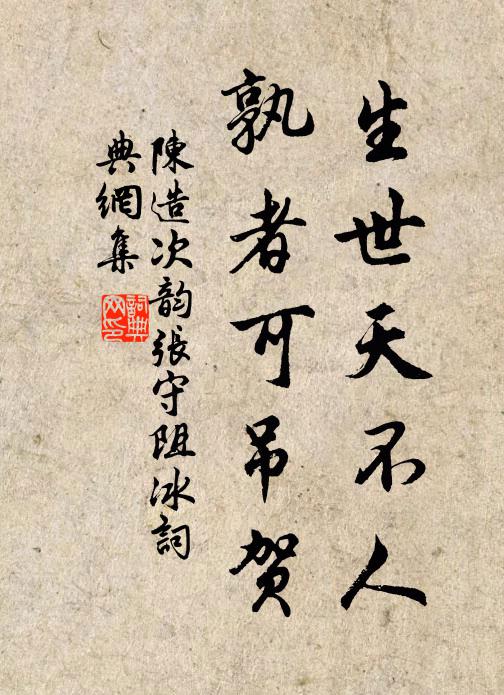 生世天不人
孰者可吊贺
陳造次韵張守阻冰詞
典網集
詞典網印